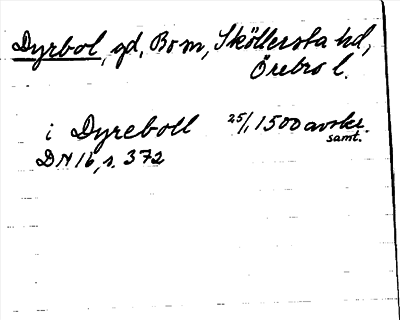 Dyrbol, gd, Bo sn, Sköllersta hd,
Örebro l.
i Dyreboll 25/1 1500 avskr.
samt.
DN 16, s. 372